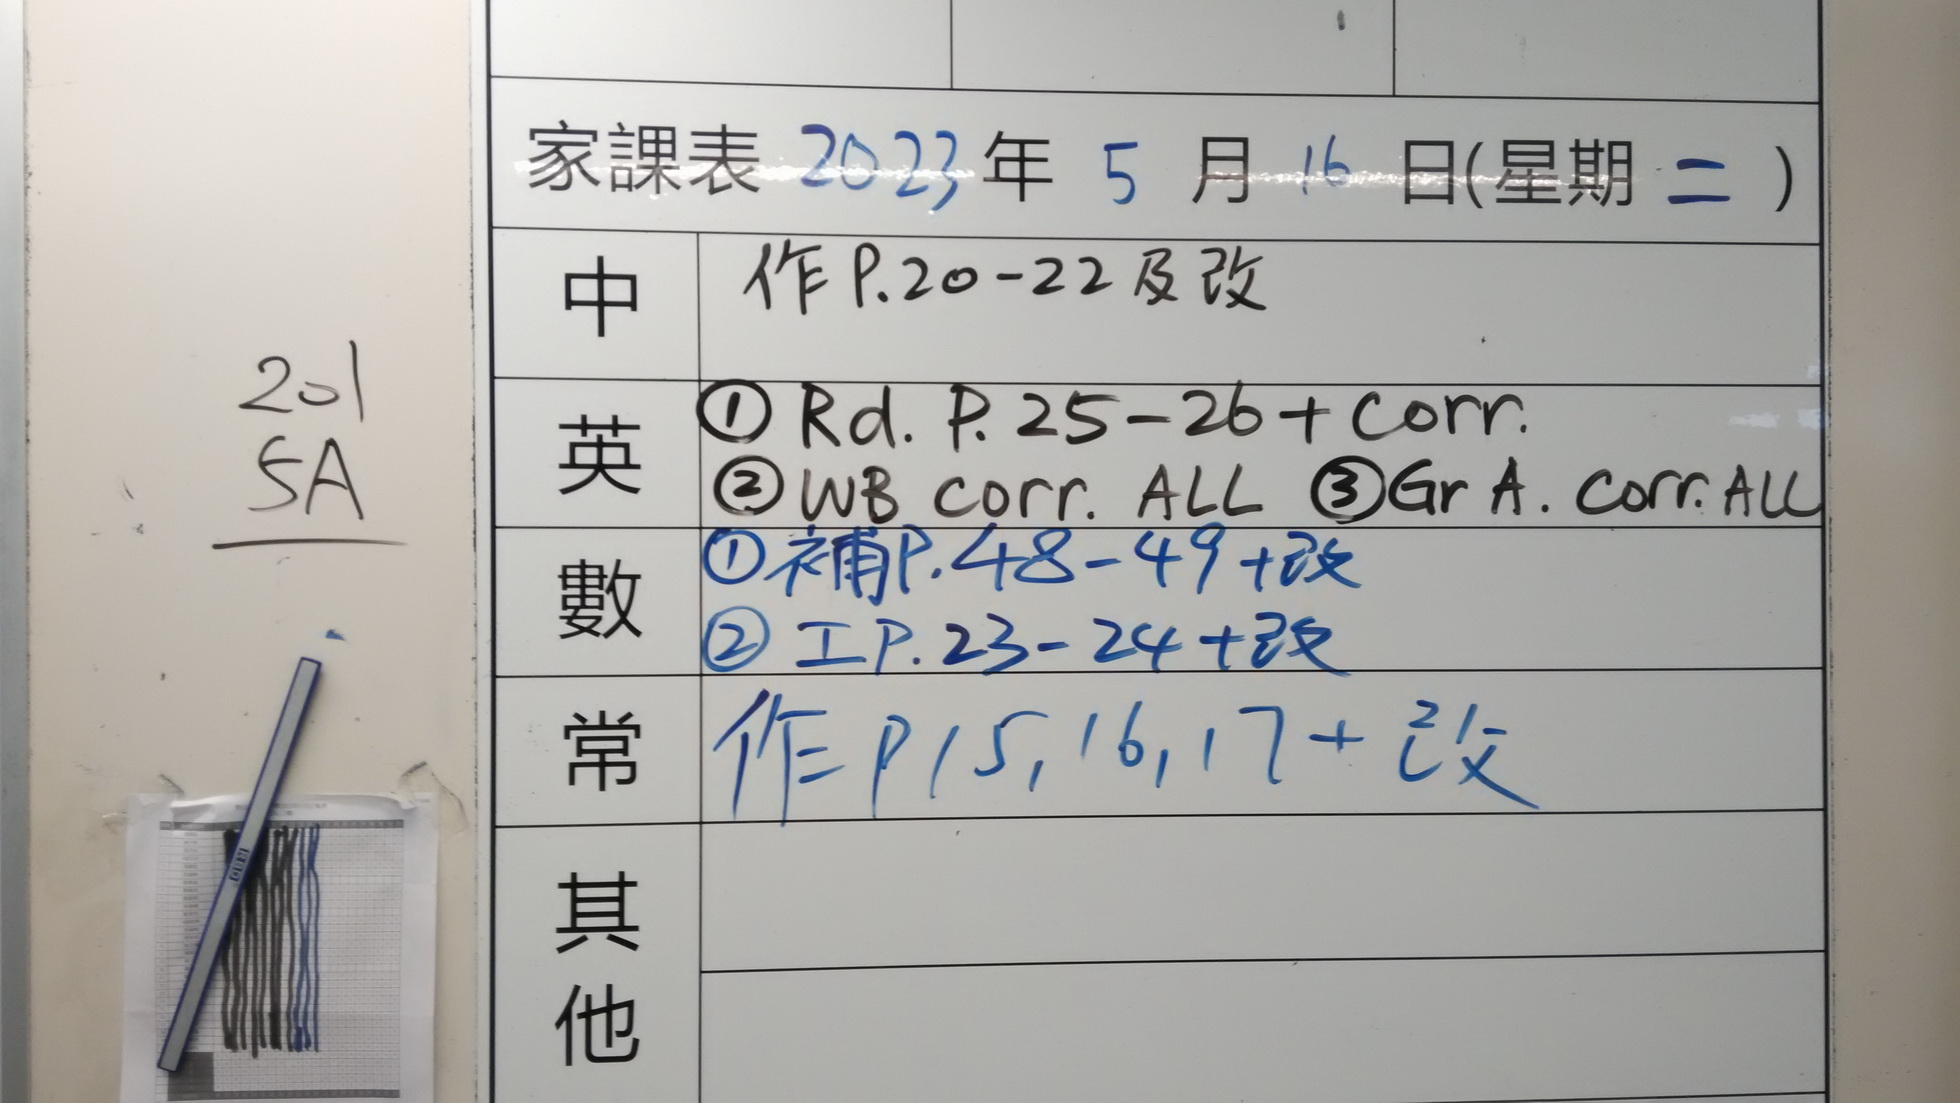 家課表 2023年 5 月 16 日(星期 二 )
中
作 P.20-22 及改
201
5A
英
① Rd. P. 25-26 + corr.
② WB corr. ALL ③ Gr A. corr. ALL
數
① 補 P.48-49 + 改
② 工 P.23-24 + 改
常
作 P 15, 16, 17 + 改
其
他